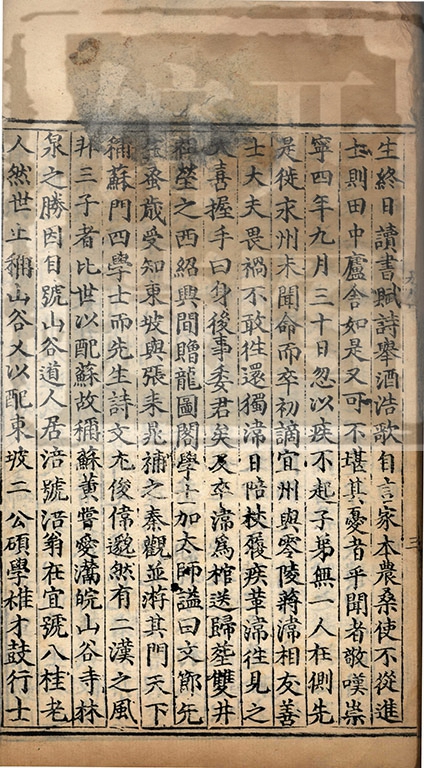 生終日讀書賦詩舉酒浩歌自言家本農桑使不從進
士則田中廬舍如是又可不堪其憂者乎聞者敬嘆崇
寧四年九月三十日忽以疾不起子弟無一人在側先
是徙永州未聞命而卒初謫宜州與零陵蔣湋相友善
士大夫畏禍不敢徃還獨湋日陪杖履疾革湋徃見之
大喜握手曰身後事委君矣及卒湋爲棺送歸塟雙井
祖塋之西紹興間贈龍圖閣學士加太師謚曰文節先
生蚤歲受知東坡與張耒晁補之秦觀並游其門天下
稱蘇門四學士而先生詩文尤俊偉邈然有二漢之風
非三子者比世以配蘇故稱蘇黃嘗愛灊皖山谷寺林
泉之勝因自號山谷道人居涪號涪翁在宜號八桂老
人然世止稱山谷又以配東坡二公碩學雄才鼓行士